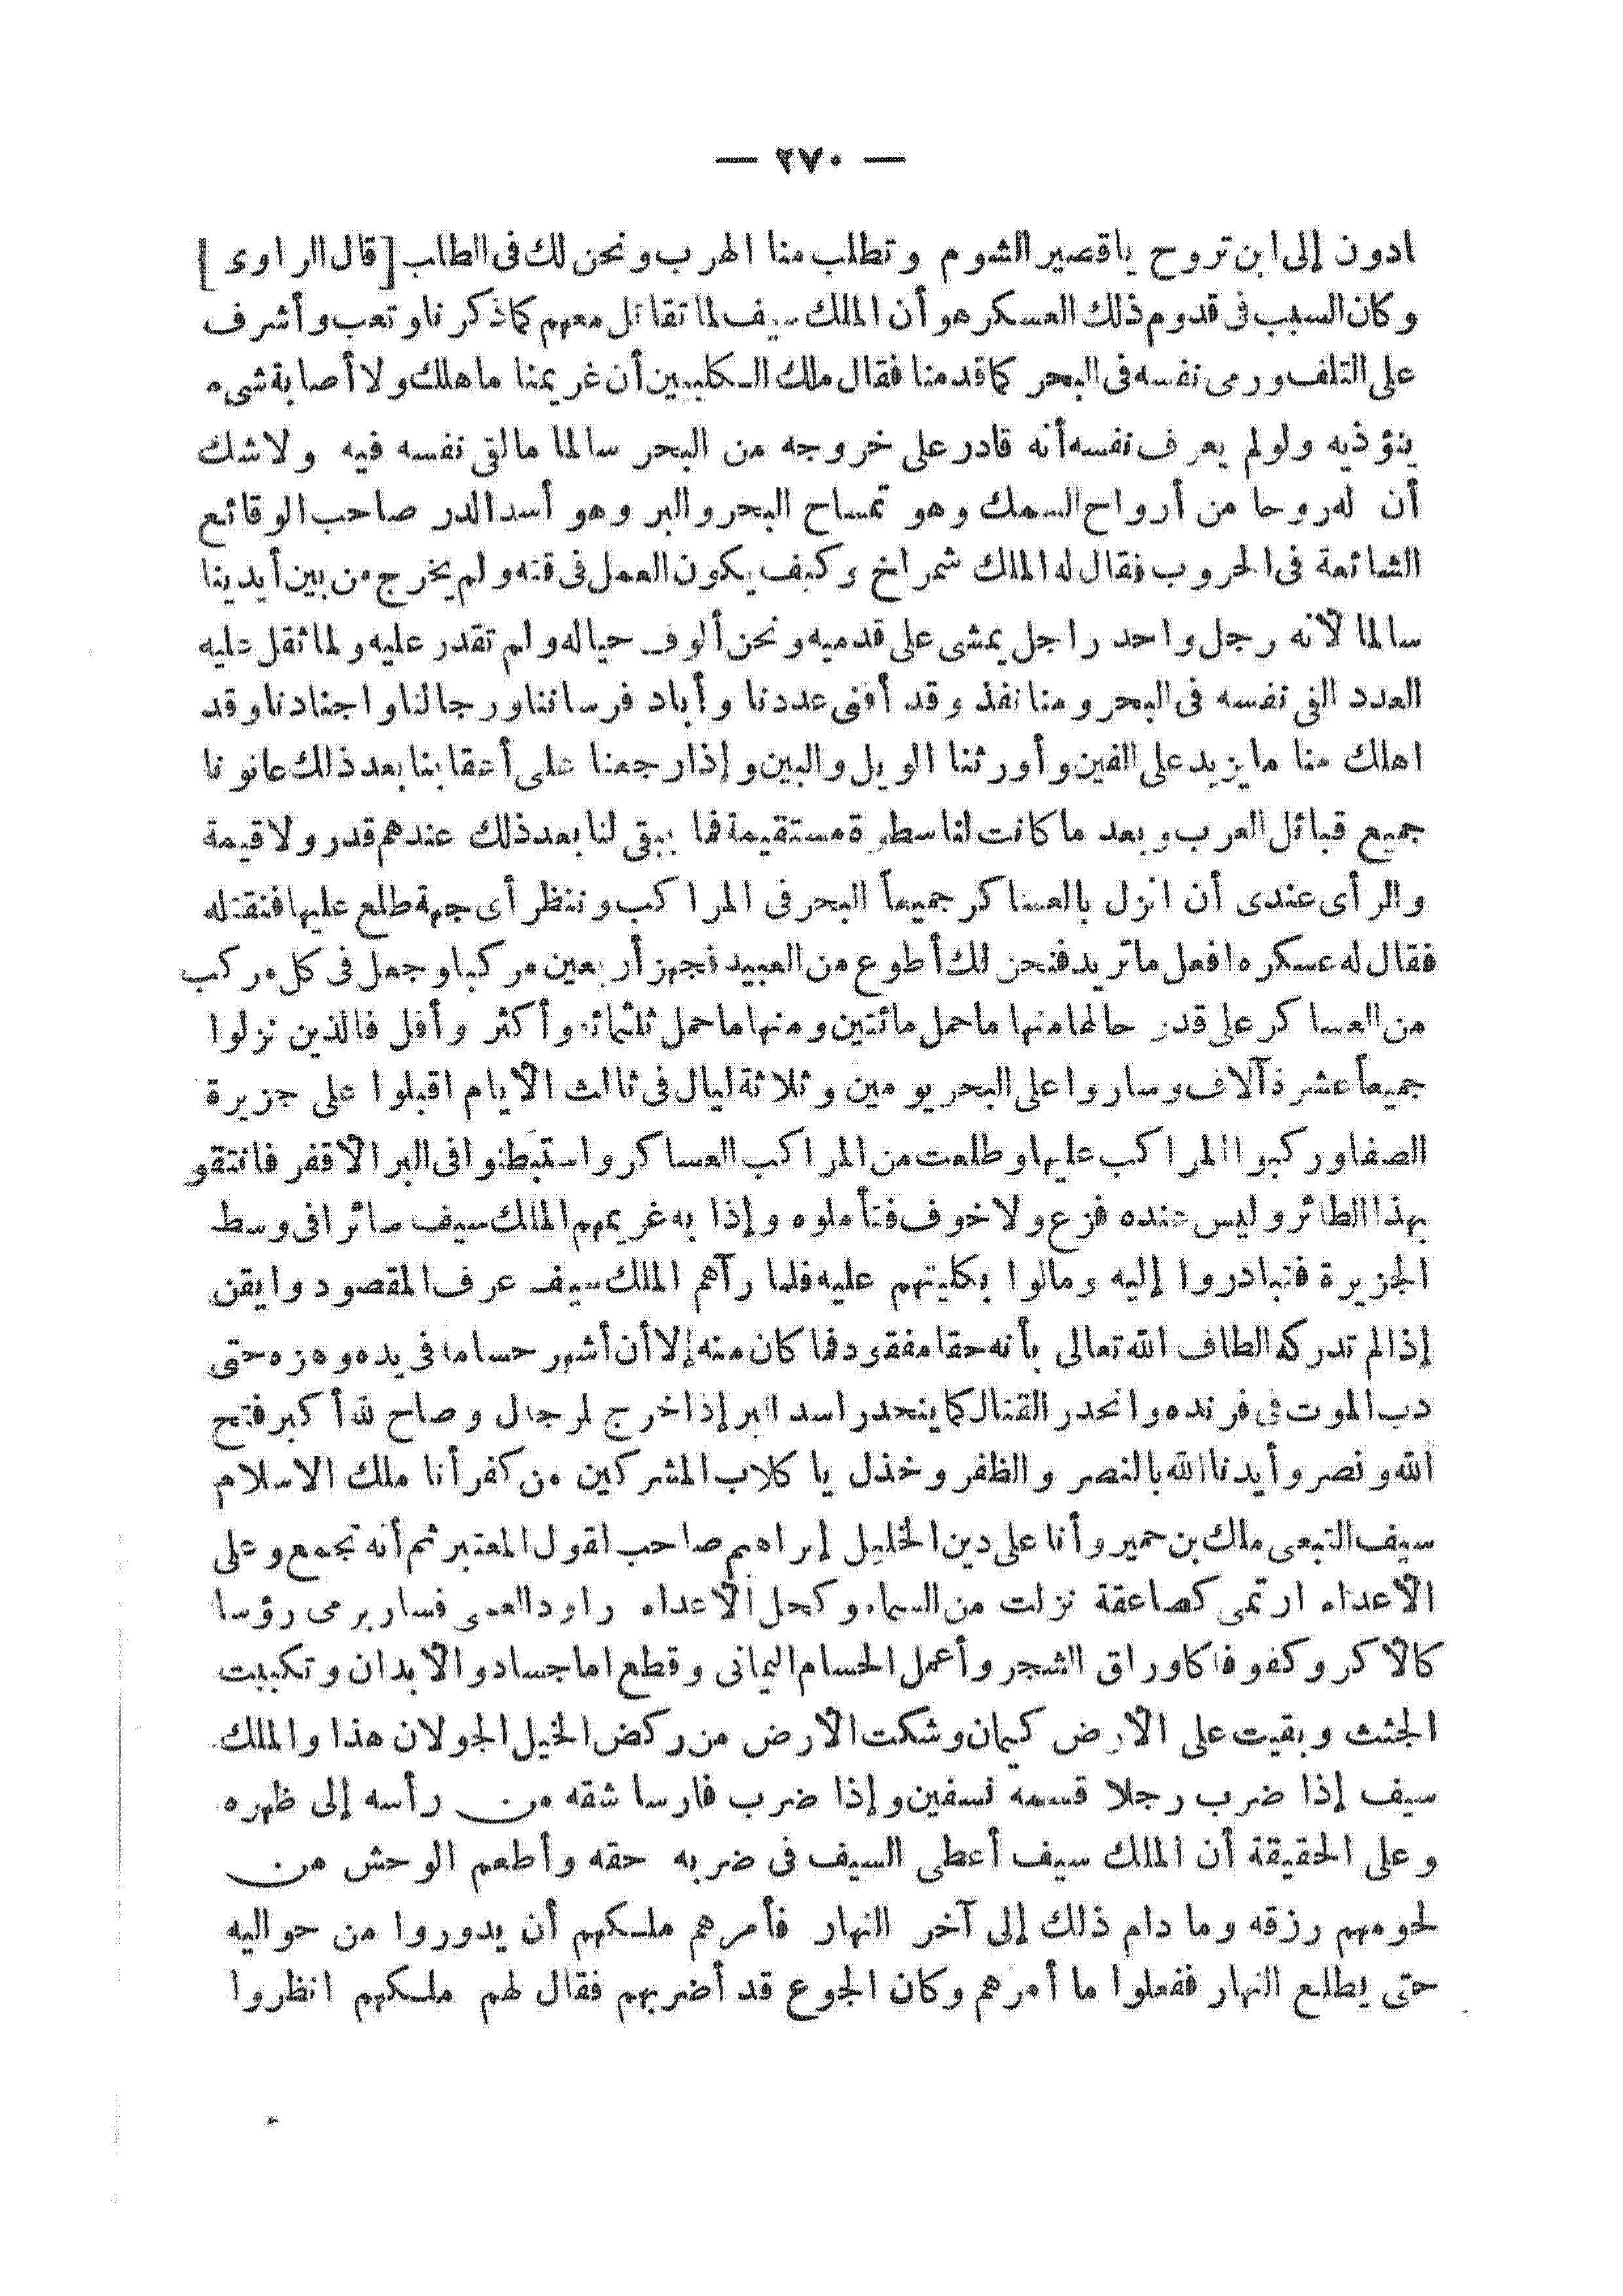 — ٢٧٠ —
ادون إلى ابن تروح ياقصير الشوم وتطلب منا الهرب ونحن لك فى الطلب [ قال الراوى ]
وكان السبب فى قدوم ذلك العسكر هو أن الملك سيف لما تقاتل معهم كما ذكرنا وتعب وأشرف
على التلف ورمى نفسه فى البحر كما قدمنا فقال ملك الكلبيين أن غريمنا ما هلك ولا أصابة شىء
يؤذيه ولو لم يعرف نفسه أنه قادر على خروجه من البحر سالما ما لقى نفسه فيه ولا شك
أن له روحا من أرواح السمك وهو تمساح البحر والبر وهو أسد الدر صاحب الوقائع
الشائعة فى الحروب فقال له الملك شمراخ وكيف يكون العمل فى قتله ولم يخرج من بين أيدينا
سالما لأنه رجل واحد راجل يمشى على قدميه ونحن ألوف حياله ولم نقدر عليه ولما ثقل عليه
العدد القى نفسه فى البحر ومنا نفذ وقد أفنى عددنا وأباد فرساننا ورجالنا واجنادنا وقد
اهلك منا ما يزيد على الفين وأورثنا الويل والبين وإذا رجعنا على أعقابنا بعد ذلك عانونا
جميع قبائل العرب وبعد ما كانت لنا سطوة مستقيمة فما يبقى لنا بعد ذلك عندهم قدر ولا قيمة
والرأى عندى أن انزل بالعساكر جميعاً البحر فى المراكب وننظر أى جهة طلع عليها فنقتله
فقال له عسكره افعل ما تريد فنحن لك أطوع من العبيد فجهز أربعين مركبا وجعل فى كل مركب
من العساكر على قدر حالها منها ما حمل مائتين ومنها ما حمل ثلثمائة وأكثر وأقل فالذين نزلوا
جميعاً عشرة آلاف وساروا على البحر يومين وثلاثة ليال فى ثالث الأيام اقبلوا على جزيرة
الصفا وركبوا المراكب عليها وطلعت من المراكب العساكر واستبطنوا فى البر الأقفر فانتقو
بهذا الطائر وليس عنده فزع ولا خوف فتأملوه وإذا به غريمهم الملك سيف سائرا فى وسط
الجزيرة فتبادروا إليه ومالوا بكليتهم عليه فلما رآهم الملك سيف عرف المقصود وايقن
إذا لم تدركه الطاف الله تعالى بأنه حقا مفقود فما كان منه إلا أن أشهر حساما فى يده وهزه حتى
دب الموت فى فرنده وانحدر القتال كما ينحدر اسد البر إذا خرج لرجال وصاح لله أكبر فتح
الله ونصر وأيدنا الله بالنصر والظفر وخذل يا كلاب المشركين من كفر أنا ملك الاسلام
سيف التبعى ملك بن حمير وأنا على دين الخليل إبراهيم صاحب القول المعتبر ثم أنه تجمع وعلى
الأعداء ارتمى كصاعقة نزلت من السماء وكحل الأعداء راود العمى فسار يرمى رؤسا
كالأكر وكفوفا كاوراق الشجر وأعمل الحسام اليمانى وقطع اما جساد والأبدان وتكببت
الجثث وبقيت على الأرض كيمان وشكت الأرض من ركض الخيل الجولان هذا والملك
سيف إذا ضرب رجلا قسمه نسفين وإذا ضرب فارسا شقه من رأسه إلى ظهره
وعلى الحقيقة أن الملك سيف أعطى السيف فى ضربه حقه وأطعم الوحش من
لحومهم رزقه وما دام ذلك إلى آخر النهار فأمرهم ملكهم أن يدوروا من حواليه
حتى يطلع النهار ففعلوا ما أمرهم وكان الجوع قد أضربهم فقال لهم ملكهم انظروا